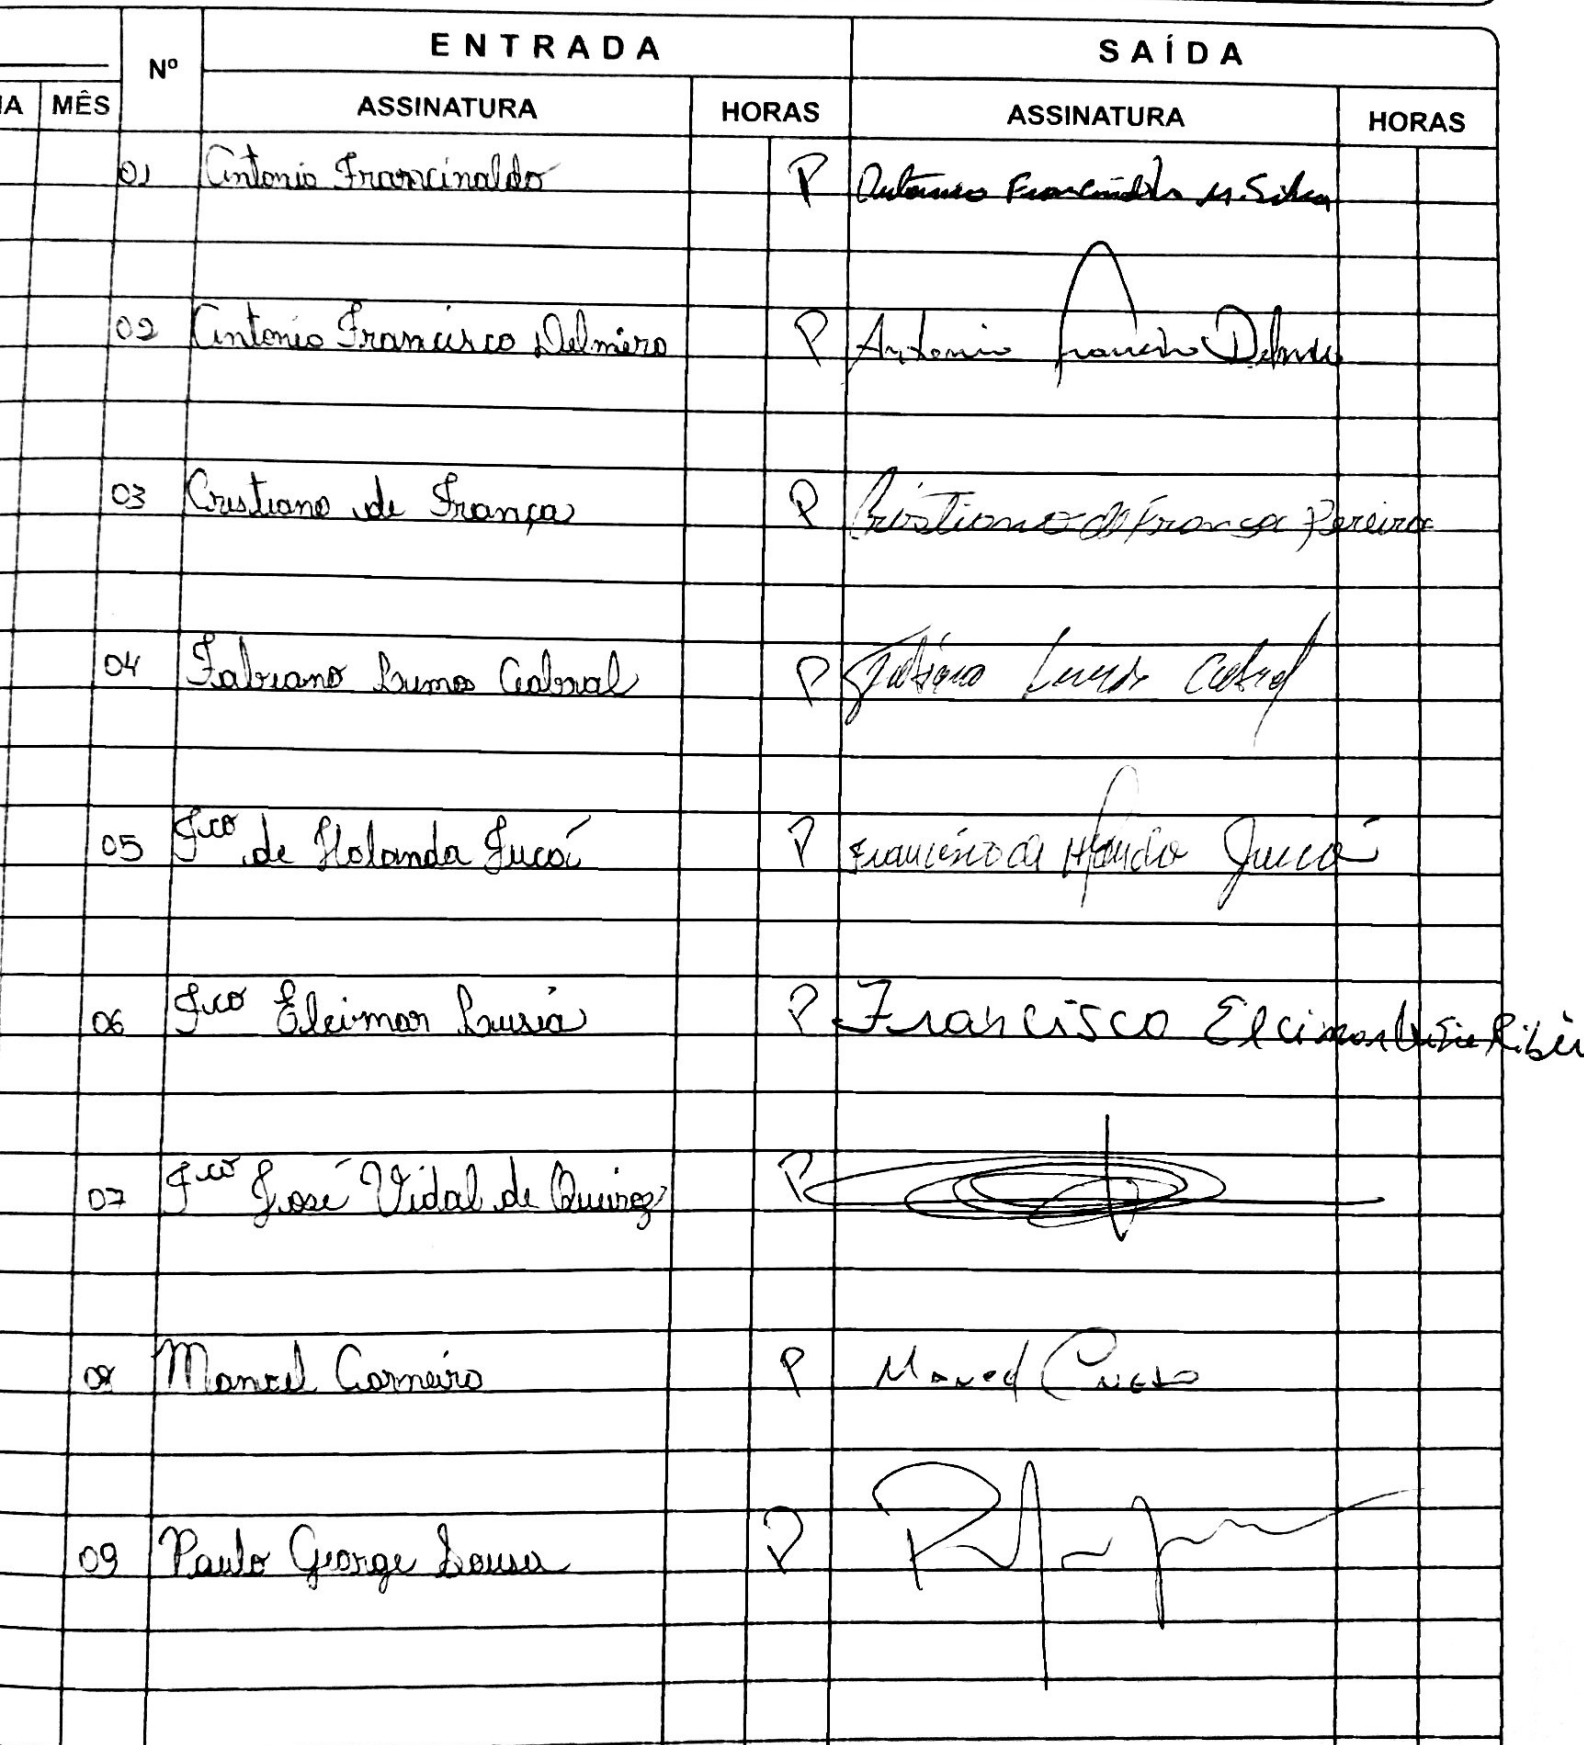 ENTRADA SAÍDA
Nº
IA MÊS ASSINATURA HORAS ASSINATURA HORAS
01 Antonio Francinaldo P Antonio Francinaldo M. Silva
02 Antonio Francisco Delmiro P Antonio Francisco Delmiro
03 Cristiano de França P Cristiano de França Pereira
04 Fabiano Lumes Cabral P Fabiano Cabral
05 Fco de Holanda Jucá P Francisco de Holanda Jucá
06 Fco Elcimar Lusia P Francisco Elcimar
07 Fco José Vidal de Queiroz P
08 Manoel Carneiro P Manoel
09 Paulo George Sousa P